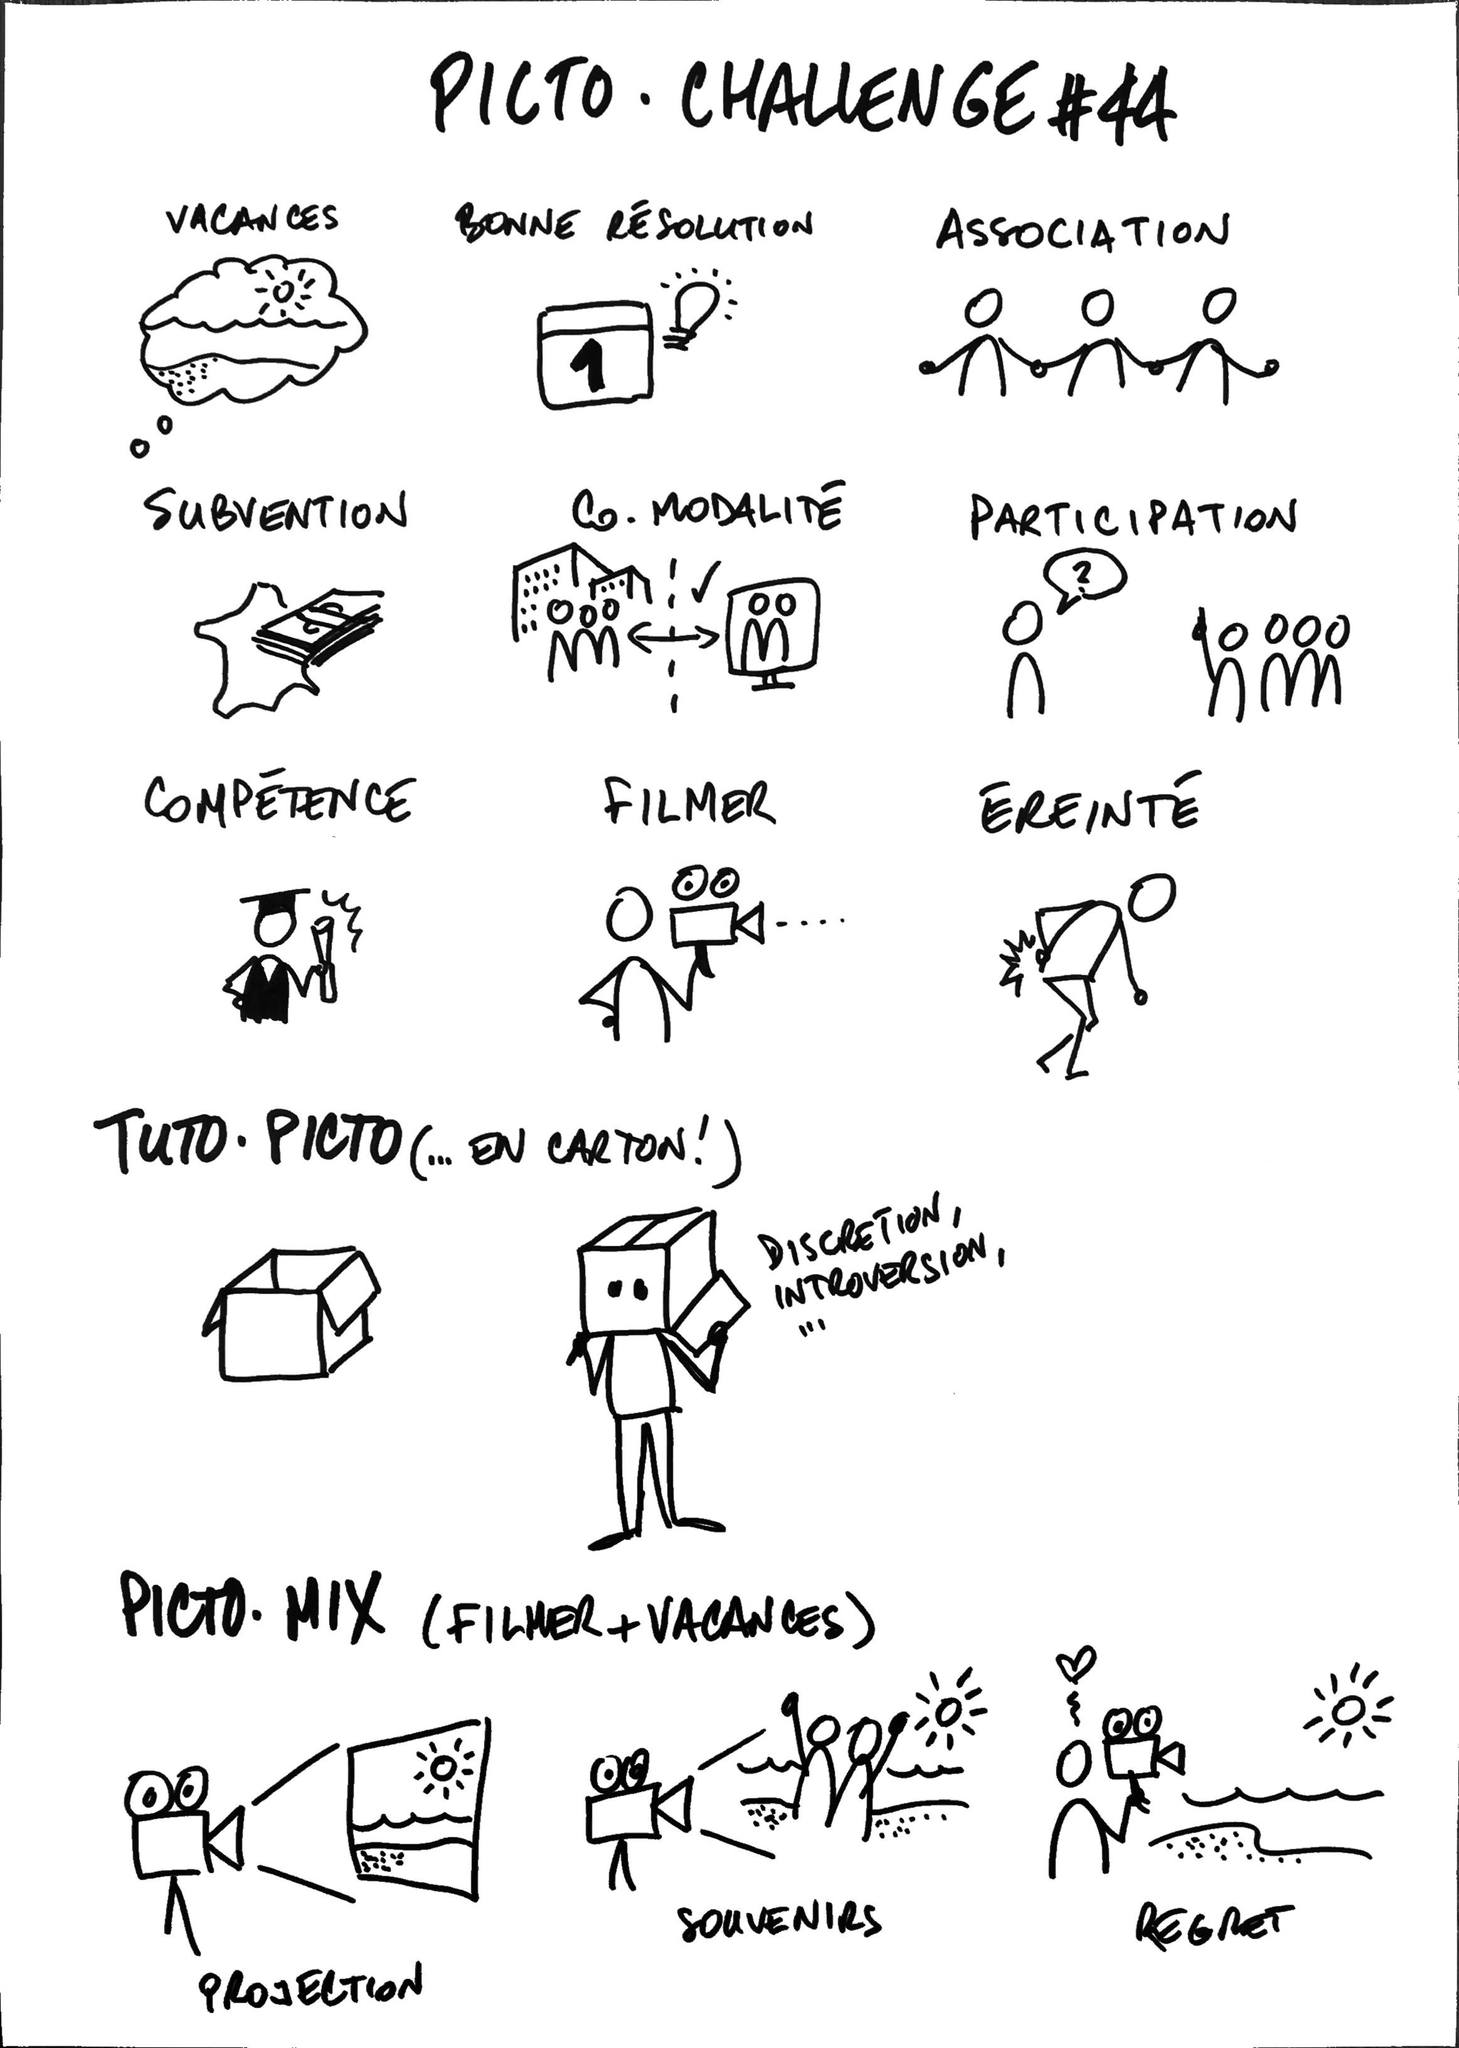 PICTO. CHALLENGE #44
VACANCES
BONNE RÉSOLUTION
ASSOCIATION
1
SUBVENTION
CO. MODALITÉ
PARTICIPATION
?
COMPÉTENCE
FILMER
ÉREINTÉ
TUTO. PICTO (... EN CARTON!)
DISCRÉTION,
INTROVERSION,
...
PICTO. MIX (FILMER + VACANCES)
PROJECTION
SOUVENIRS
REGRET